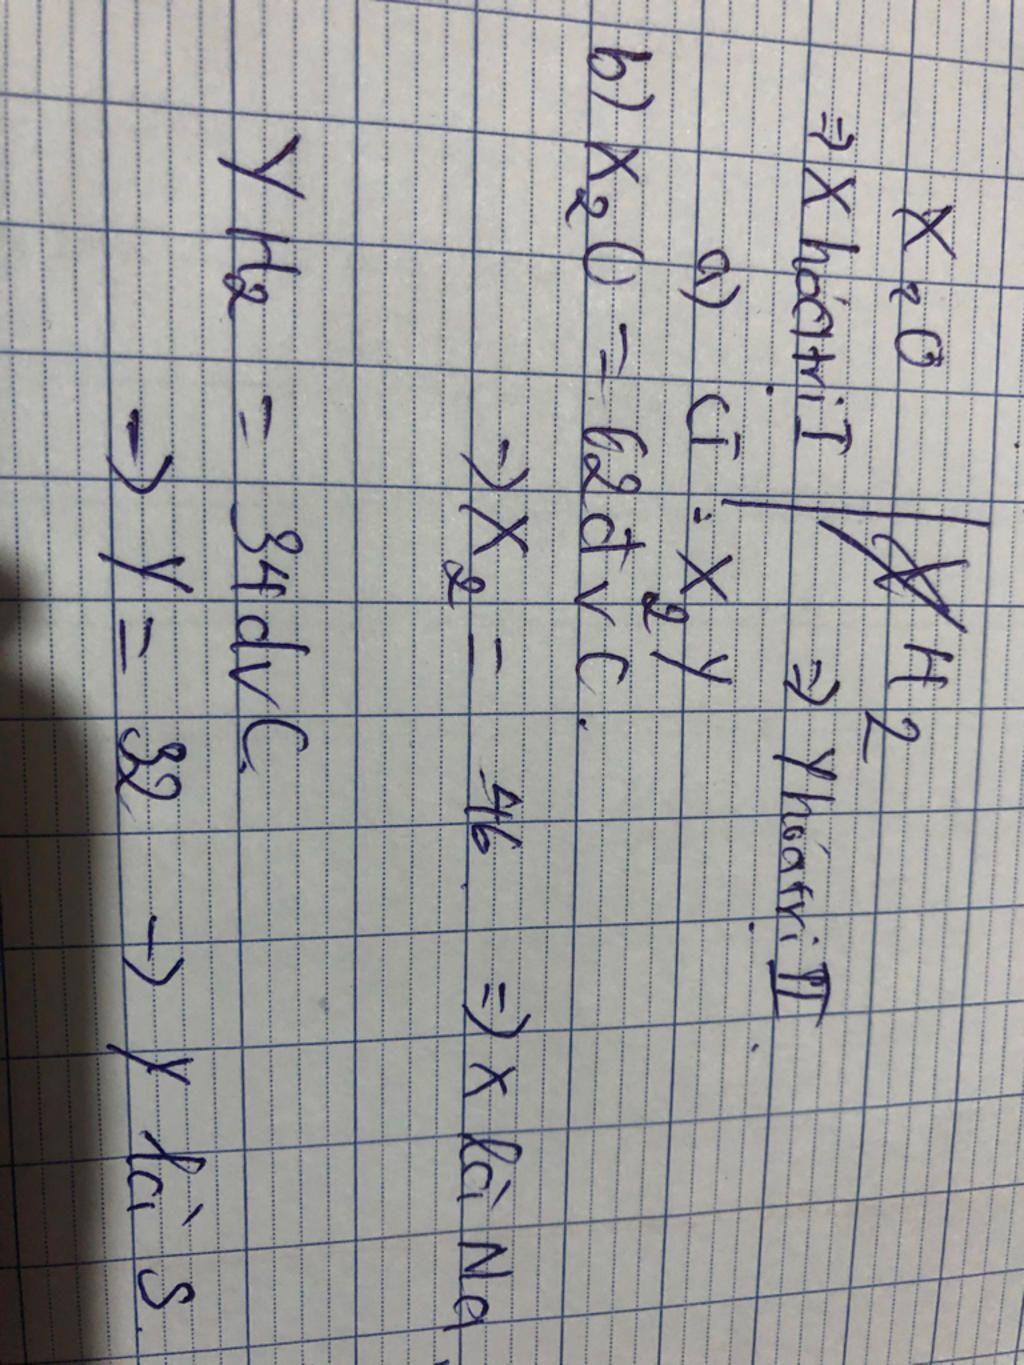 X₂O | YH₂
=> X hóa trị I => Y hóa trị II
a) CT: X₂Y
b) X₂O = 62 đvC.
=> X₂ = 46 => X là Na
YH₂ = 34 đvC
=> Y = 32 -> Y là S.